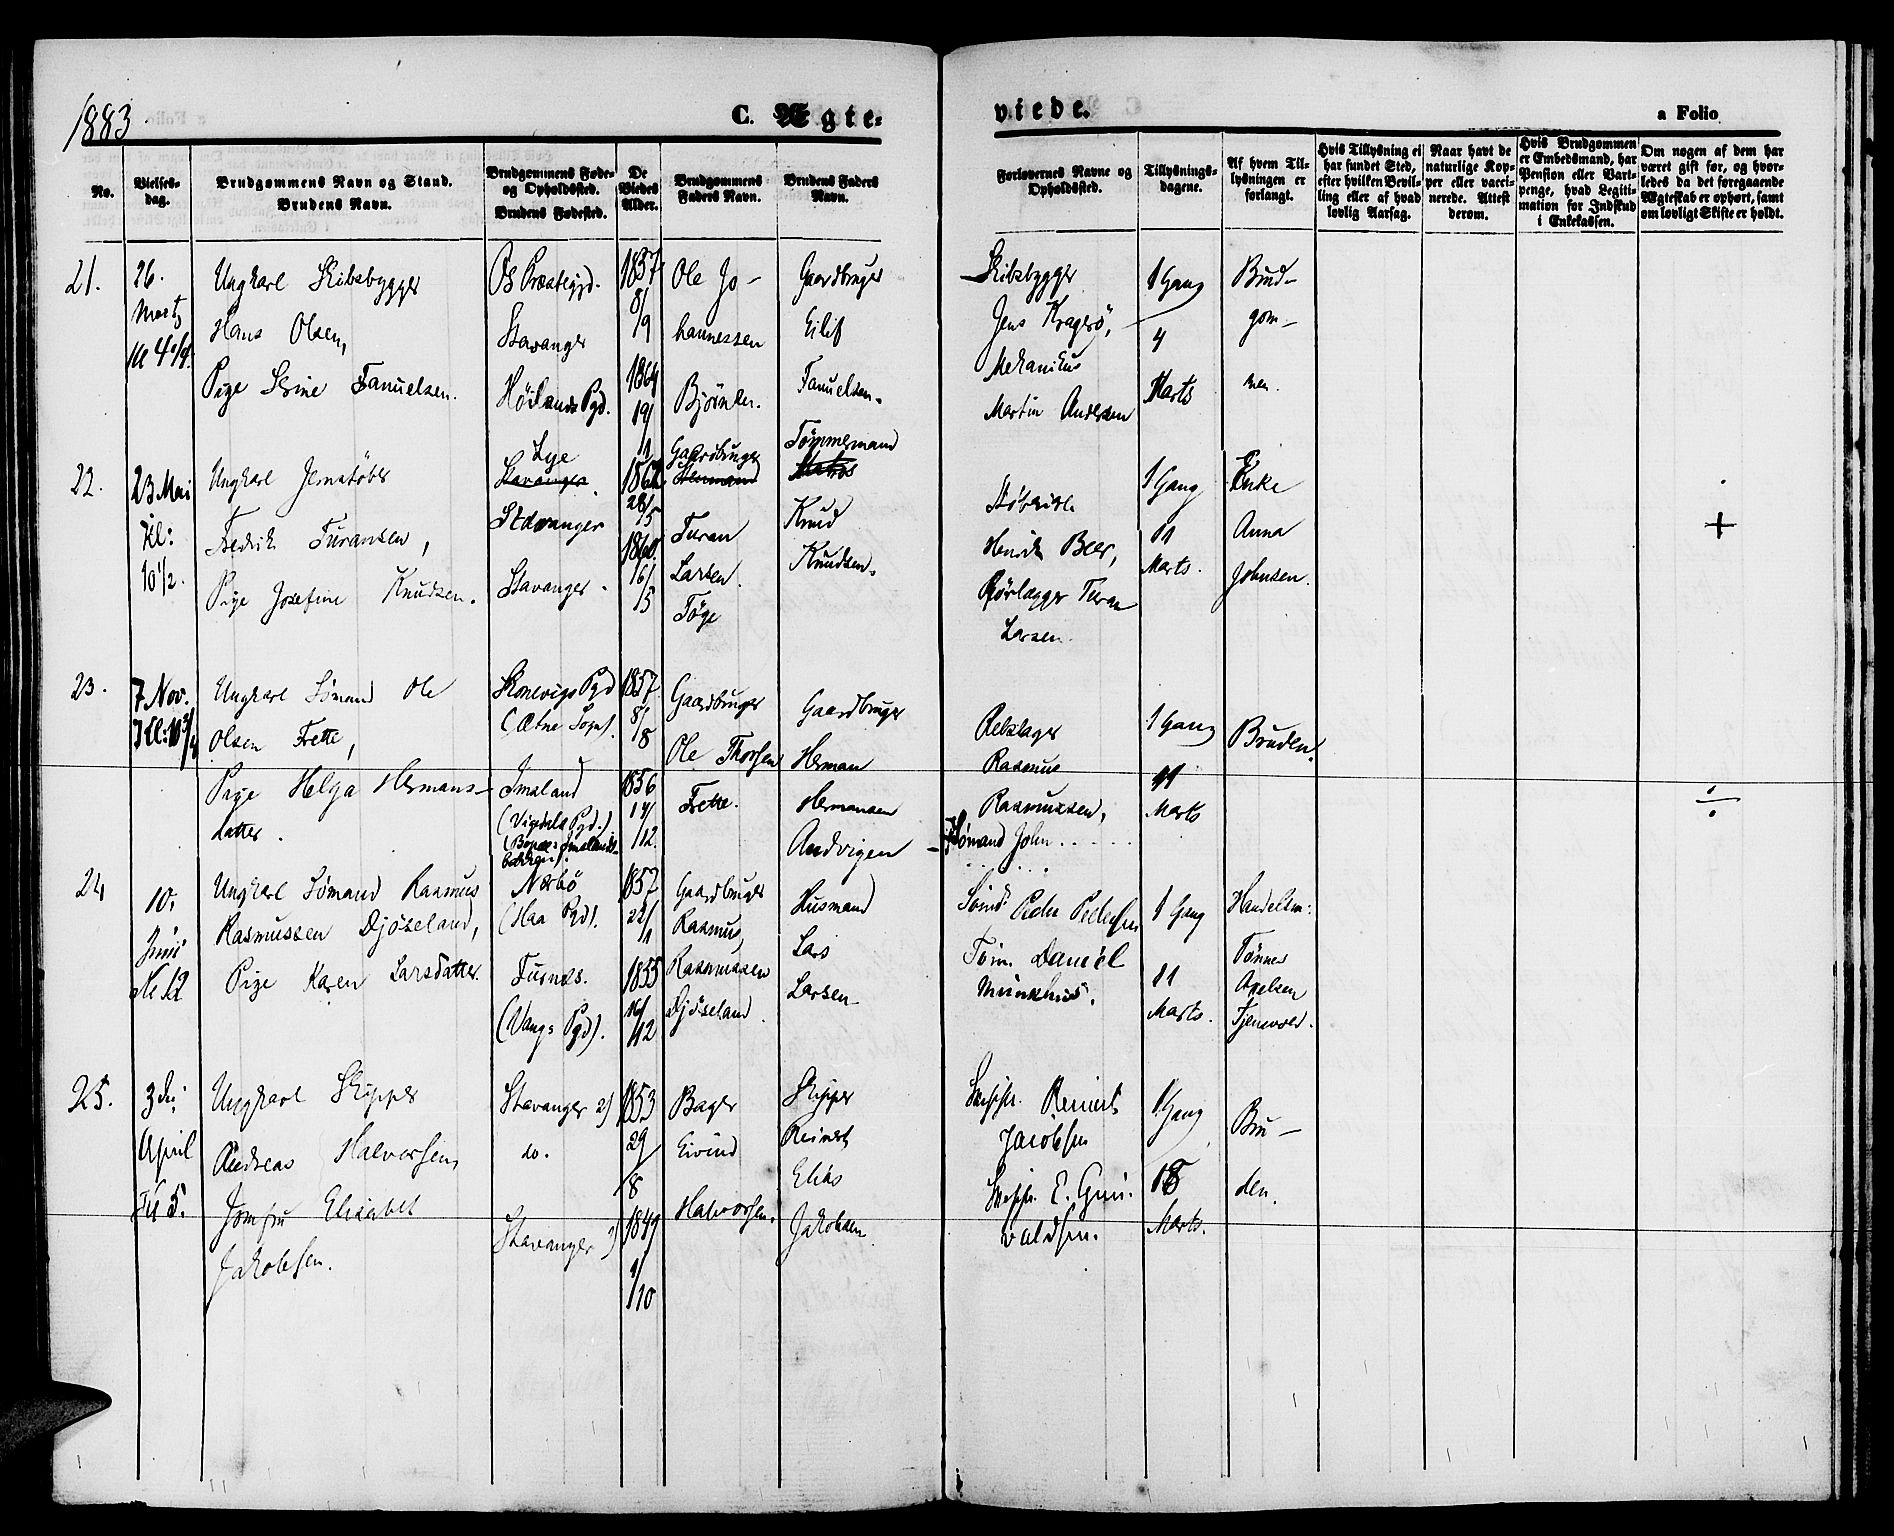 1883
C. Ægte=
viede.
a Folio
No.
Vielses-
dag.
Brudgommens Navn og Stand.
Brudens Navn.
Brudgommens Føde-
og Opholdssted.
Brudens Fødested.
De
Viedes
Alder.
Brudgommens
Faders Navn.
Brudens Faders
Navn.
Forlovernes Navne og
Opholdssted.
Tillysnings-
dagene.
Af hvem Til-
lysningen er
forlangt.
Hvis Tillysning ei
har fundet Sted,
efter hvilken Bevil-
ling eller af hvad
lovlig Aarsag.
Naar havt de
naturlige Kop-
per eller vacci-
nerede. Attest
derom.
Hvis Brudgommen
er Embedsmand, har
Pension eller Vart-
penge, hvad Legiti-
mation for Indskud
i Enkekassen.
Om nogen af dem har
været gift før, og hvor-
ledes da det foregaaende
Ægteskab er ophørt, samt
om lovligt Skifte er holdt.
21.
26.
Marts
Kl 4 1/4.
Ungkarl Skibsbygger
Hans Olsen,
Pige Serine Fanuelsen.
Os Præstegjd.
Stavanger
Höilands Pgd.
1857
8/9
1864
19/1
Ole Jo-
hannessen
Björnlen.
Gaardbruger
Eilif
Fanuelsen.
Skibsbygger
Jens Kragerö,
Mekanikus
Martin Andersen
1 Gang
4
Marts
Brud-
gom-
men.
22.
23 Mai
Kl:
10 1/2.
Ungkarl Jernstøber
Fredrik Turansen,
Pige Josefine Knudsen.
Lye
Stavanger
Stavanger
Stavanger.
1862
28/5
1860.
16/5
Gaardbruger
Turan
Larsen.
Töge
Tømmermand
Matros
Knud
Knudsen.
Henrik Beer,
Rørlægger Turan
Larsen.
1 Gang
11
Marts.
Enke
Anna
Johnsen.
+
23.
7 Nov.
Kl: 10 3/4
Ungkarl Sømand Ole
Olsen Frette,
Pige Helga Hermans-
datter.
Skonevigs Pgd
(Ætne Sogn).
Imsland
(Vigedals Pgd.)
1857.
8/8
1856
14/12.
Gaardbruger
Ole Thorsen
Frette.
Gaardbruger
Herman
Hermansen
Andvigen
Rebslager
Rasmus
Rasmussen,
Sømand John . . . . . .
. . . .
1 Gang
11
Marts
Bruden.
÷
24
10.
Juni
Kl 12
Ungkarl Sømand Rasmus
Rasmussen Djöseland,
Pige Karen Larsdatter.
Nærbö
(Haa Pgd).
Furnes.
(Vangs Pgd).
1857
22/1
1855
16/12
Gaardbruger
Rasmus
Rasmussen
Djöseland.
Husmand
Lars
Larsen
Sömd: Peder Pedersen
Töm. Daniel
Munkhus.
1 Gang
11
Marts.
Handelsm:
Tönnes
Axelsen
Tjensvold.
25.
3die
April
Kl 5.
Ungkarl Skipper
Andreas Halvorsen,
Jomfru Elisabet
Jakobsen.
Stavanger 2)
do.
Stavanger
1853
29/8
1849
1/10
Bager
Eivind
Halvorsen.
Skipper
Reinert
Elias
Jakobsen.
Skippr. Reinert
Jacobsen
Skippr. E. Gun-
valdsen.
1 Gang
18
Marts.
Bru-
den.